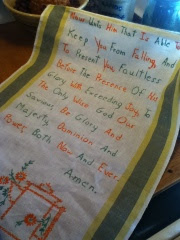 Now Unto Him That Is Able to
Keep You From Falling, And
To Present You Faultless
Before The Presence Of His
Glory With Exceeding Joy, to
The Only Wise God Our
Saviour, Be Glory And
Majesty, Dominion And
Power, Both Now And Ever.
Amen.